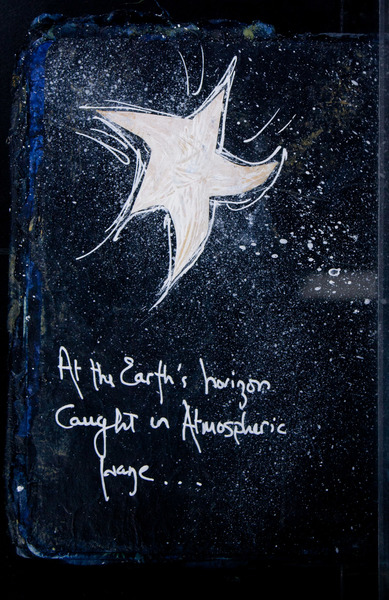 At the Earth's horizon
Caught in Atmospheric
haze...